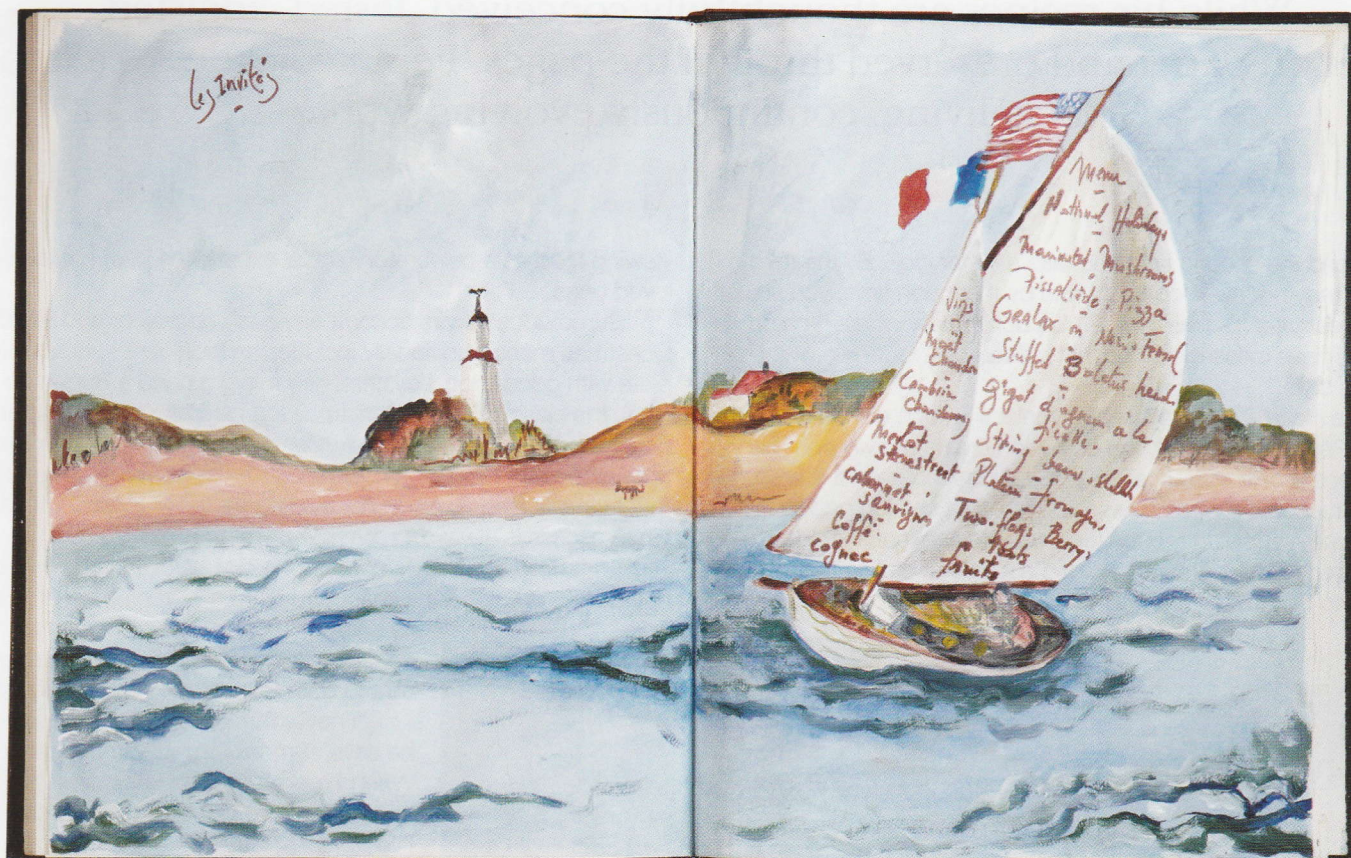 Les Invités
Menu
National Holidays
Marinated Mushrooms
Pissaliède. Pizza
GRALAX on Nori. Fennel
Stuffed Boletus heads
Gigot d'agneau à la
ficelle.
String beans. shallots
Plateau fromages
Two. flags Berrys
fruits
Vins
Moët
Chandon
Cambria
Chardonnay
Merlot
cabernet.
sauvignon
Coffé.
cognac